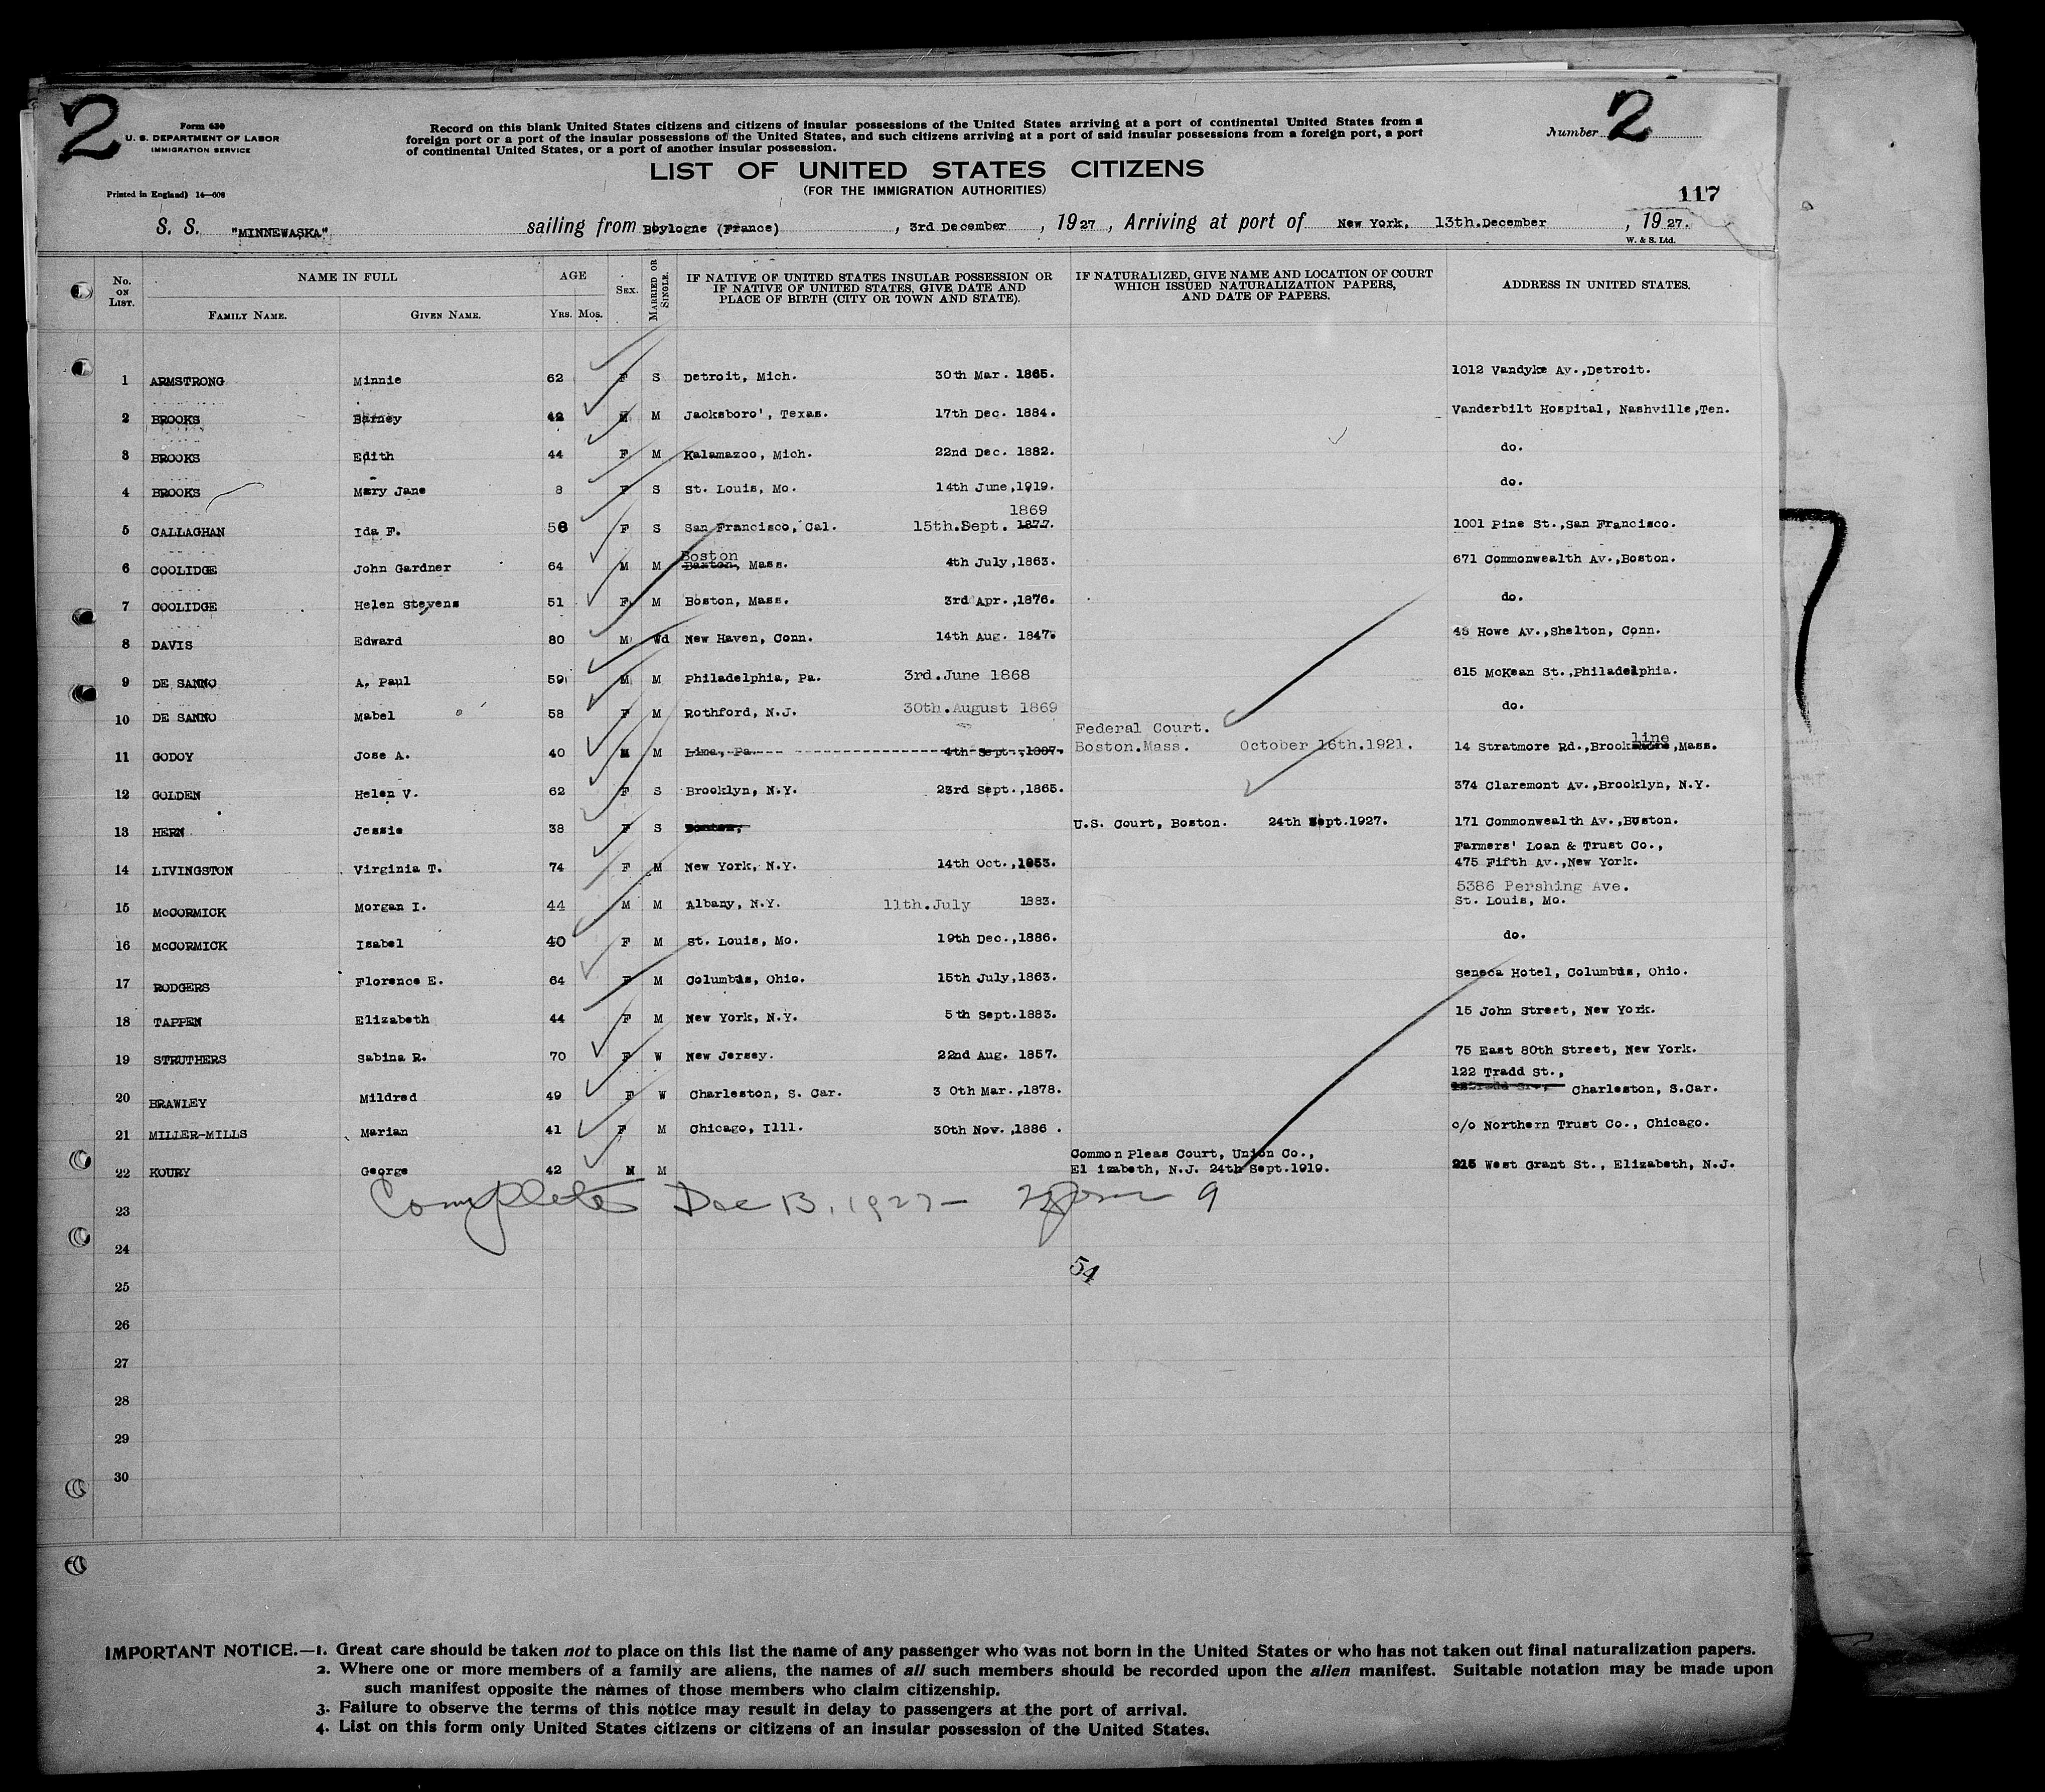 2
Form 630
U. S. DEPARTMENT OF LABOR
IMMIGRATION SERVICE
Printed in England) 14—608
Record on this blank United States citizens and citizens of insular possessions of the United States arriving at a port of continental United States from a
foreign port or a port of the insular possessions of the United States, and such citizens arriving at a port of said insular possessions from a foreign port, a port
of continental United States, or a port of another insular possession.
LIST OF UNITED STATES CITIZENS
(FOR THE IMMIGRATION AUTHORITIES)
Number 2
117
S. S. "MINNEWASKA" sailing from Boylogne (France), 3rd December, 1927, Arriving at port of New York, 13th.December, 1927.
W. & S. Ltd.
No. ON LIST. NAME IN FULL AGE SEX. MARRIED OR SINGLE. IF NATIVE OF UNITED STATES INSULAR POSSESSION OR IF NATIVE OF UNITED STATES, GIVE DATE AND PLACE OF BIRTH (CITY OR TOWN AND STATE). IF NATURALIZED, GIVE NAME AND LOCATION OF COURT WHICH ISSUED NATURALIZATION PAPERS, AND DATE OF PAPERS. ADDRESS IN UNITED STATES.
FAMILY NAME. GIVEN NAME. YRS. MOS.
1 ARMSTRONG Minnie 62 F S Detroit, Mich. 30th Mar. 1865. 1012 Vandyke Av.,Detroit.
2 BROOKS Barney 42 M M Jacksboro', Texas. 17th Dec. 1884. Vanderbilt Hospital, Nashville,Ten.
3 BROOKS Edith 44 F M Kalamazoo, Mich. 22nd Dec. 1882. do.
4 BROOKS Mary Jane 8 F S St. Louis, Mo. 14th June,1919. do.
1869
5 CALLAGHAN Ida F. 58 F S San Francisco, Cal. 15th.Sept. 1877. 1001 Pine St.,San Francisco.
Boston
6 COOLIDGE John Gardner 64 M M Baxton, Mass. 4th July,1863. 671 Commonwealth Av.,Boston.
7 COOLIDGE Helen Stevens 51 F M Boston, Mass. 3rd Apr.,1876. do.
8 DAVIS Edward 80 M Wd New Haven, Conn. 14th Aug. 1847. 48 Howe Av.,Shelton, Conn.
9 DE SANNO A. Paul 59 M M Philadelphia, Pa. 3rd.June 1868 615 McKean St.,Philadelphia.
10 DE SANNO Mabel 58 F M Rothford, N.J. 30th.August 1869 do.
Federal Court.
line
11 GODOY Jose A. 40 M M Lima, Pa. 4th Sept.,1887. Boston.Mass. October 16th.1921. 14 Stratmore Rd.,Brook ,Mass.
12 GOLDEN Helen V. 62 F S Brooklyn, N.Y. 23rd Sept.,1865. 374 Claremont Av.,Brooklyn, N.Y.
13 HERN Jessie 38 F S U.S. Court, Boston. 24th Sept.1927. 171 Commonwealth Av.,Boston.
Farmers' Loan & Trust Co.,
14 LIVINGSTON Virginia T. 74 F M New York, N.Y. 14th Oct.,1853. 475 Fifth Av.,New York.
5386 Pershing Ave.
15 McCORMICK Morgan I. 44 M M Albany, N.Y. 11th.July 1883. St. Louis, Mo.
16 McCORMICK Isabel 40 F M St. Louis, Mo. 19th Dec.,1886. do.
17 RODGERS Florence E. 64 F M Columbus, Ohio. 15th July,1863. Seneca Hotel, Columbus, Ohio.
18 TAPPEN Elizabeth 44 F M New York, N.Y. 5th Sept.1883. 15 John Street, New York.
19 STRUTHERS Sabina R. 70 F W New Jersey. 22nd Aug. 1857. 75 East 80th Street, New York.
122 Tradd St.,
20 BRAWLEY Mildred 49 F W Charleston, S. Car. 3 0th Mar.,1878. Charleston, S.Car.
21 MILLER-MILLS Marian 41 F M Chicago, Illl. 30th Nov.,1886 . c/o Northern Trust Co., Chicago.
Common Pleas Court, Union Co.,
22 KOURY George 42 M M El izabeth, N.J. 24th Sept.1919. 215 West Grant St., Elizabeth, N.J.
Complete Dec 13, 1927 — 9
23
24
54
25
26
27
28
29
30
IMPORTANT NOTICE.—1. Great care should be taken not to place on this list the name of any passenger who was not born in the United States or who has not taken out final naturalization papers.
2. Where one or more members of a family are aliens, the names of all such members should be recorded upon the alien manifest. Suitable notation may be made upon
such manifest opposite the names of those members who claim citizenship.
3. Failure to observe the terms of this notice may result in delay to passengers at the port of arrival.
4. List on this form only United States citizens or citizens of an insular possession of the United States.